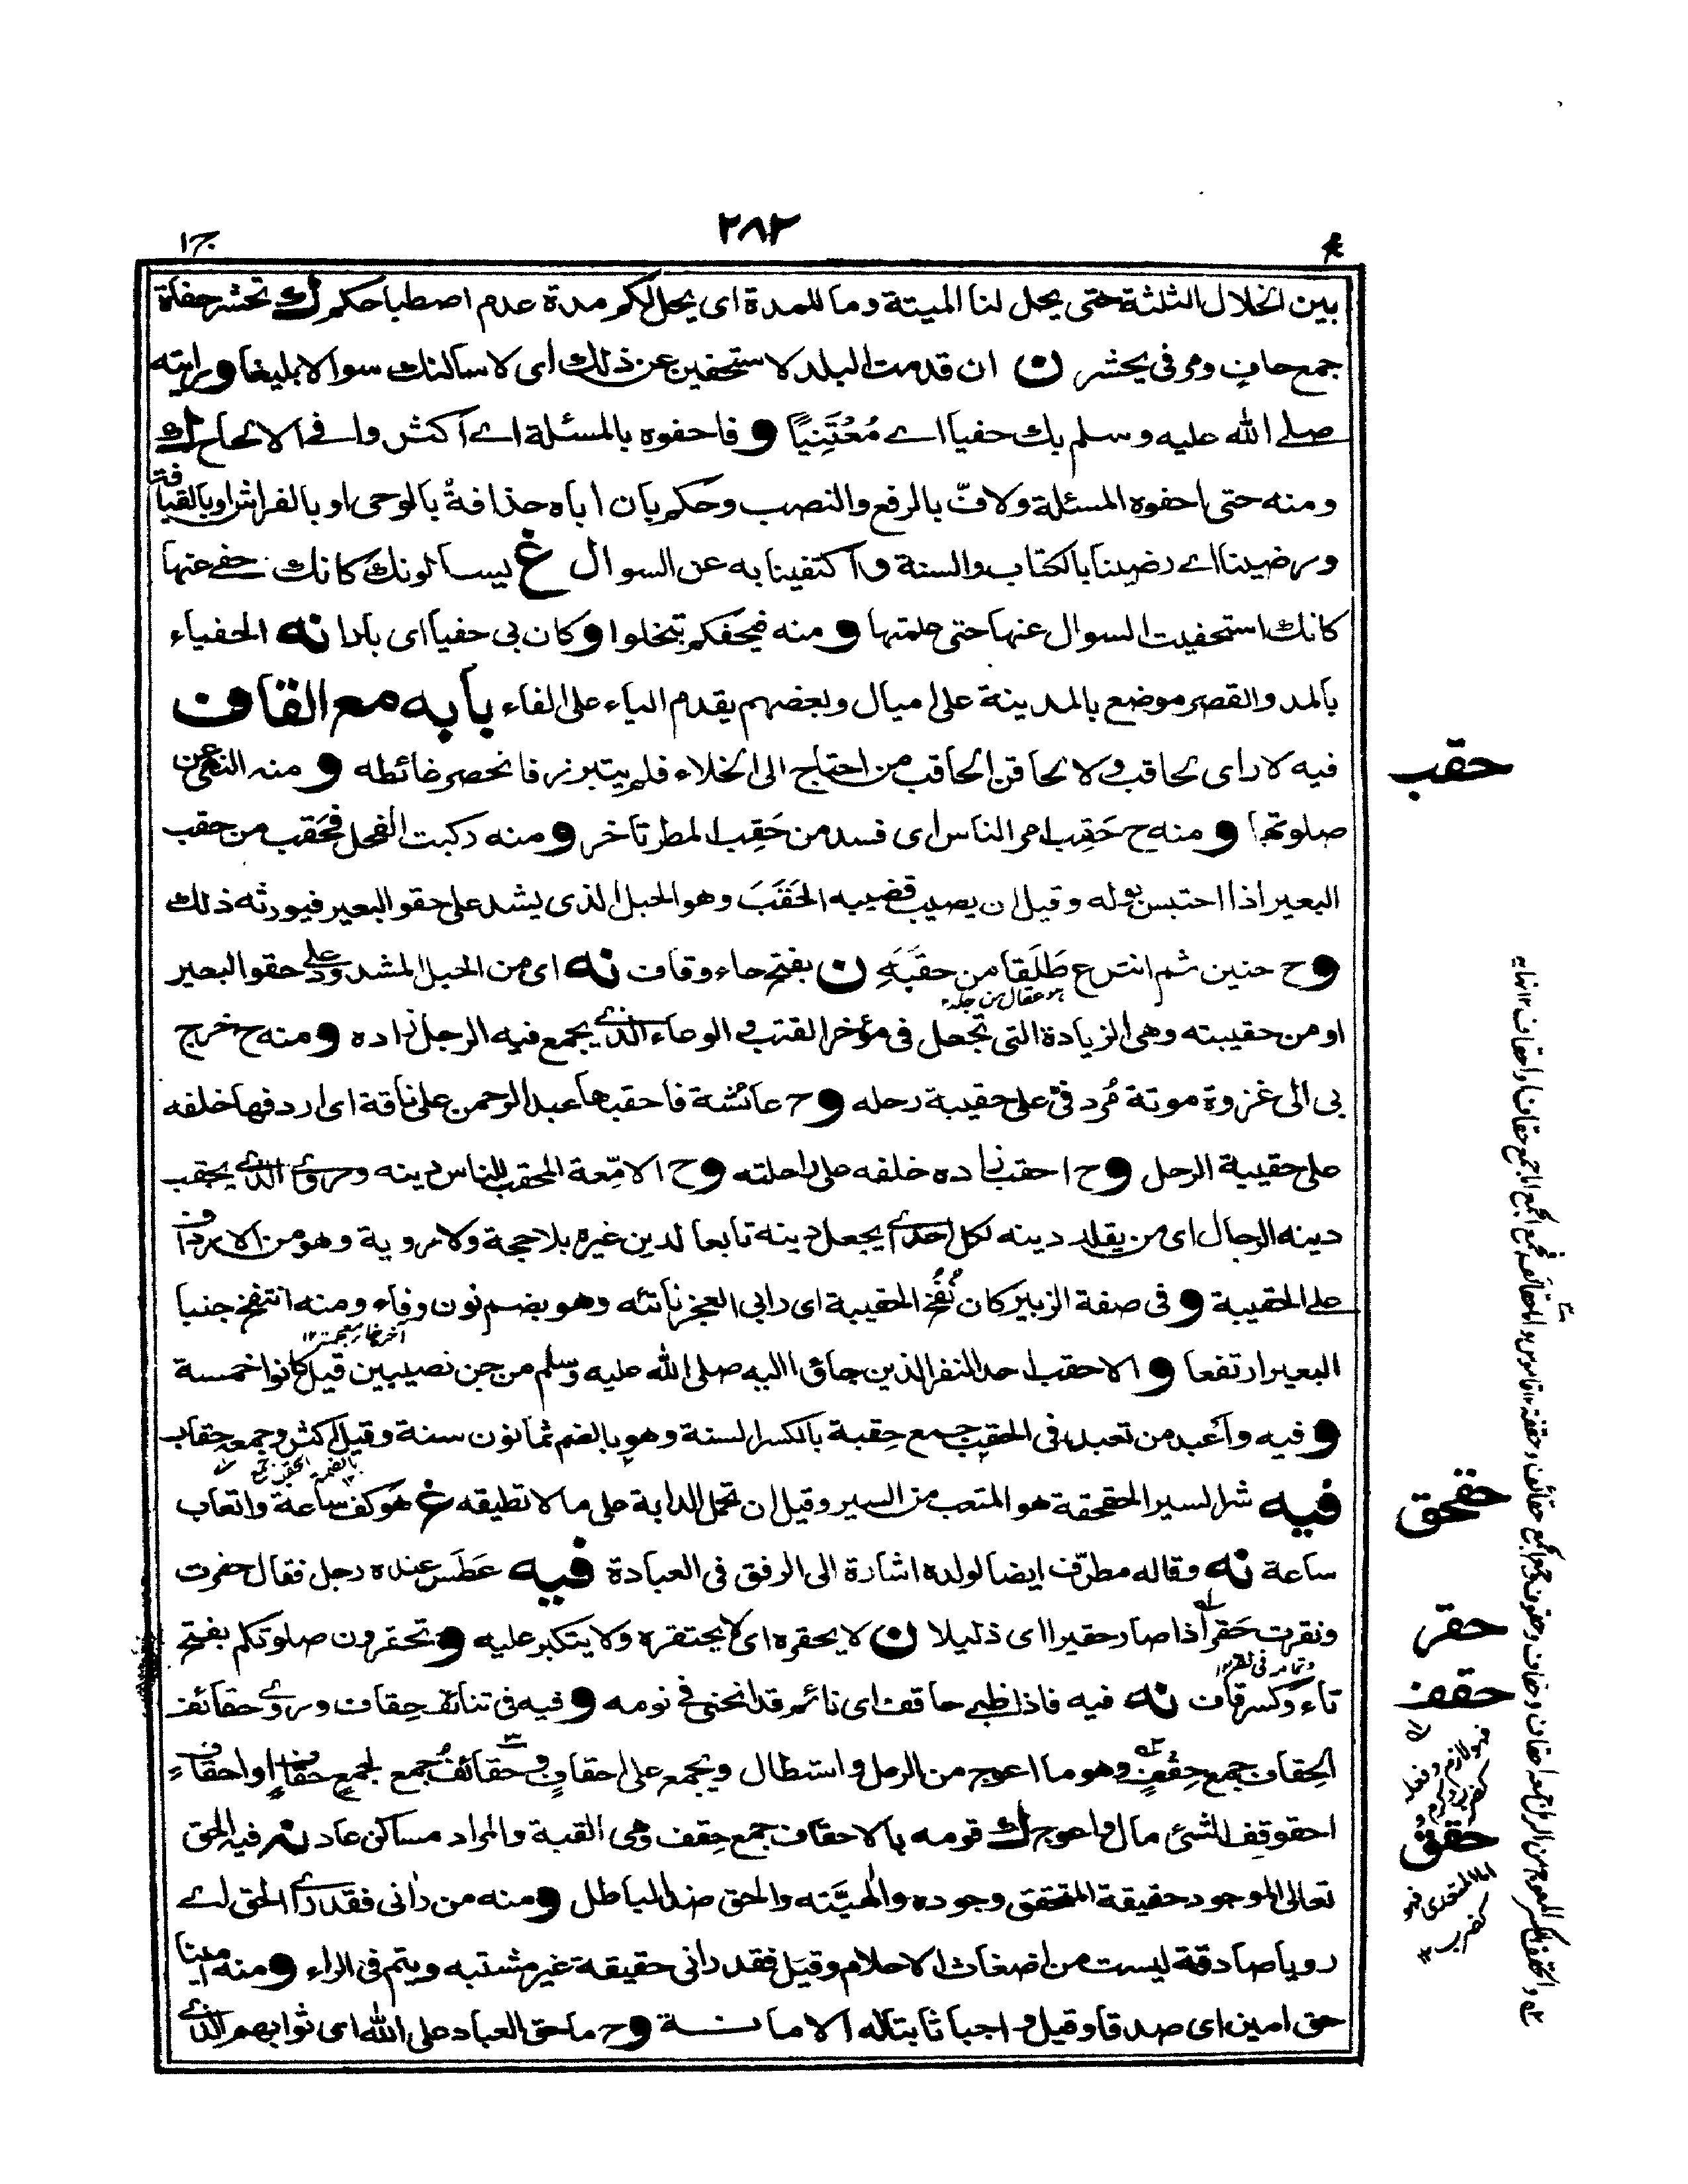 ٢٨٢
ج١
بين الخلال الثلثة حتى يحل لنا الميتة وما للمدة اى يحل لكم مدة عدم اصطباحكم ك تحشر حفاة
جمع حاف ومر فى يحشر ن ان قدمت البلد لاستحفين عن ذلك اى لاسالنك سوالا بليغا و رايته
صلے الله عليه وسلم بك حفيا اے مُعْتَنِيًا و فاحفوه بالمسئلة اے اكثروا فے الالحاح ك
ومنه حتى احفوه المسئلة ولاف بالرفع والنصب وحكم بان اباه حذافة بالوحى او بالفراش او بالقيافة
ورضينا اے رضينا بالكتاب والسنة واكتفينا به عن السوال غ يسالونك كانك حفے عنها
كانك استحفيت السوال عنها حتى علمتها و منه فيحفكم تبخلوا و كان بى حفيا اى بارا نه الحفياء
بالمد والقصر موضع بالمدينة على اميال وبعضهم يقدم الياء على الفاء بابه مع القاف
فيه لا راى لحاقب ولا لحاقن الحاقب من احتاج الى الخلاء فلم يتبرز فانحصر غائطه و منه النهى عن
صلوتها و منه ح حَقِب امر الناس اى فسد من حَقِب المطر تاخر و منه ركبت الفحل فحَقب من حقب
البعير اذا احتبس بوله وقيل ان يصيب قضيبه الحَقَبَ وهو الحبل الذى يشد على حقو البعير فيورثه ذلك
و ح حنين ثم انتزع طَلَقا من حقَبَه ن بفتح حاء وقاف نه اى من الحبل المشدود على حقو البعير
هو عقال من جلد
او من حقيبته وهى الزيادة التى تجعل فى مؤخر القتب و الوعاء الذے يجمع فيه الرجل زاده و منه ح خرج
بى الى غزوة موتة مُردفى على حقيبة رحله و ح عائشة فاحقبها عبد الرحمن على ناقة اى اردفها خلفه
على حقيبة الرحل و ح احقب زاده خلفه على راحلته و ح الامِّعة المحقب للناس دينه وروے الذے يحقب
دينه الرجال اى من يقلد دينه لكل احد اے يجعل دينه تابعا لدين غيره بلا حجة ولا روية وهو من الارداف
علے الحقيبة و فى صفة الزبير كان نُفُج الحقيبة اى رابى العجز ناتئه وهو بضم نون وفاء ومنه انتفخ جنبا
البعير ارتفعا و الاحقب احد النفر الذين جاؤا اليه صلى الله عليه وسلم من جن نصيبين قيل كانوا خمسة
و فيه واَعبد من تعبد فى الحقب جمع حِقبة بالكسر السنة وهو بالضم ثمانون سنة وقيل اكثر وجمعه حقاب
فيه شر السير الحقحقة هو المتعب من السير وقيل ان تحمل الدابة على ما لا تطيقه غ هو كف ساعة واتعاب
ساعة نه وقاله مطرِّف ايضا لولده اشارة الى الرفق فى العبادة فيه عَطَس عنده رجل فقال حقرت
ونقرت حَقر اذا صار حقيرا اى ذليلا ن لا يحقره اى لا يحتقره ولا يتكبر عليه و تحقرون صلوتكم بفتح
تاء وكسر قاف نه فيه فاذا ظبے حاقف اى نائم قد انحنى فے نومه و فيه فى تنائف حِقاف وروے حقائف
الحِقاف جمع حِقْف وهو ما اعوج من الرمل و استطال و يجمع على احقاف و حقائف جمع لجمع حقاف او احقاف
احقوقف الشئ مال واعوج ك قومه بالاحقاف جمع حِقف وهى القبة والمراد مساكن عاد نه فيه الحق
تعالى الموجود حقيقة المتحقق وجوده والٰهيَّته والحق ضد الباطل و منه من راٰنى فقد راے الحق اے
رويا صادقة ليست من اضغاث الاحلام وقيل فقد رانى حقيقة غير مشتبه ويتم فى الراء و منه امينا
حق امين اى صدقا وقيل و اجبا ثابتا له الامانة و ح ما حق العباد على الله اى ثوابهم الذے
حقب
حقحق
حقر
حقف
حقق